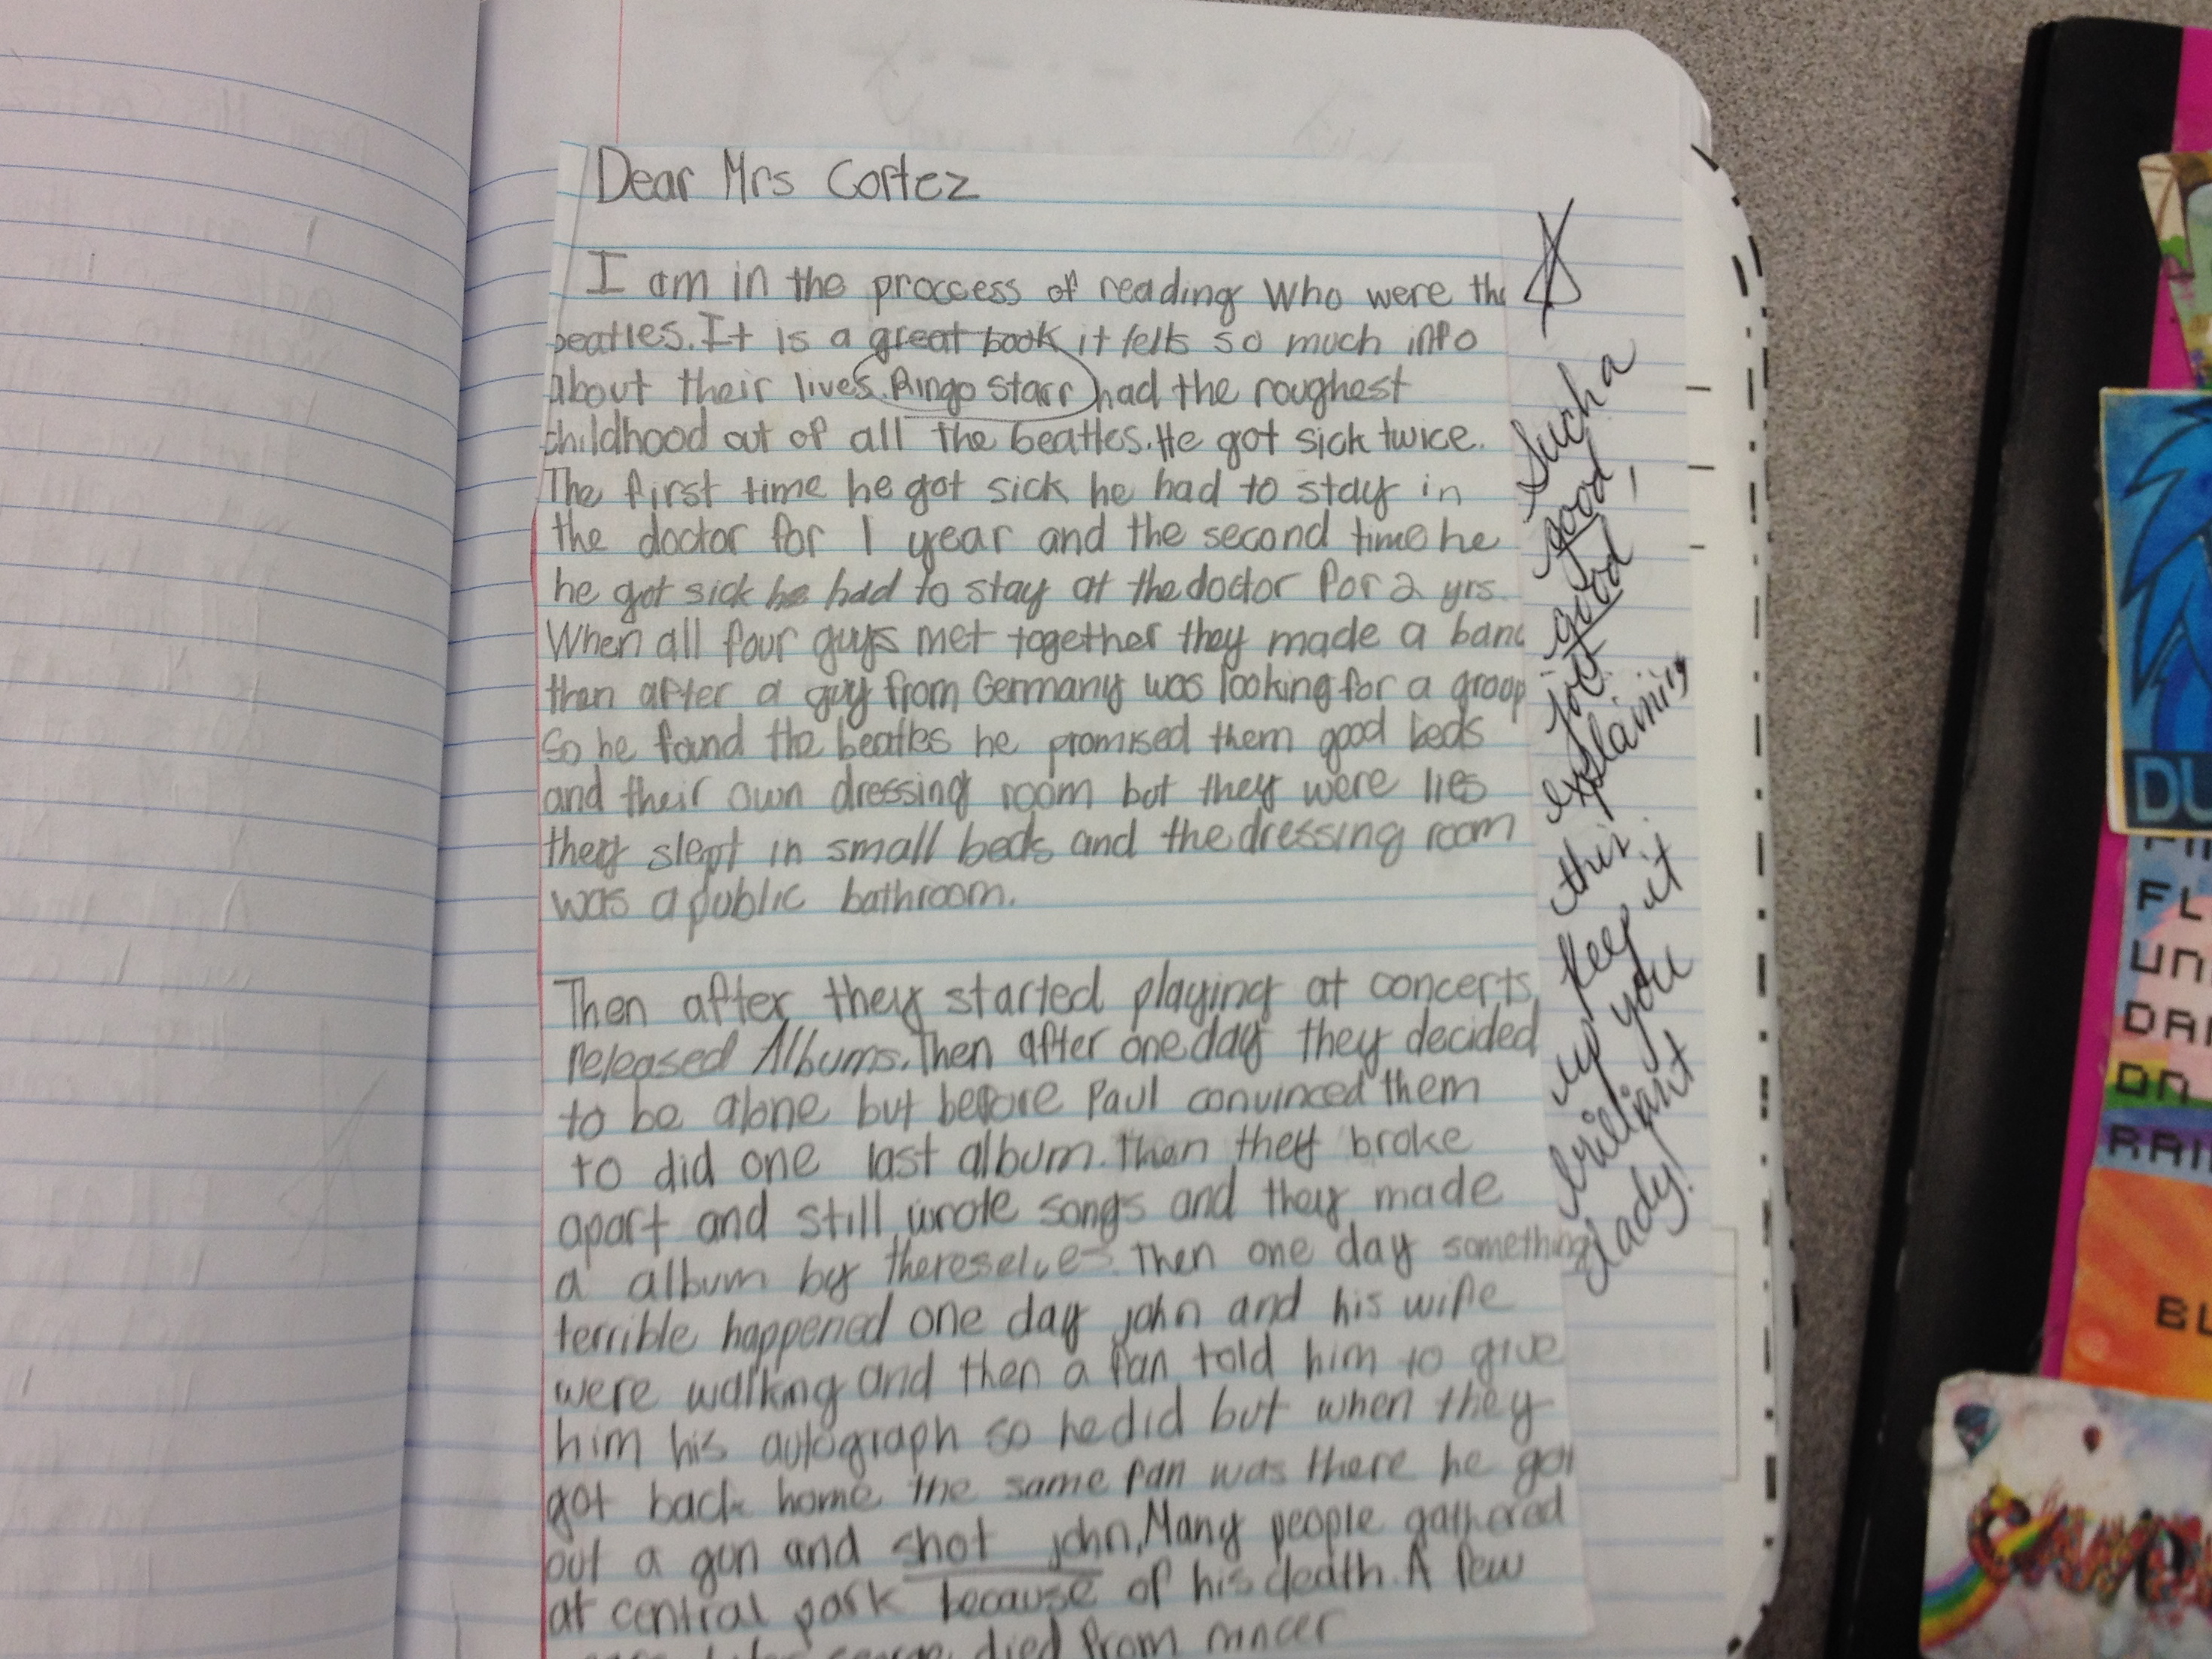 Dear Mrs Cortez
I am in the proccess of reading Who were the
beatles. It is a great book it tells so much info
about their lives. Ringo Starr had the roughest
childhood out of all the beatles. He got sick twice.
The first time he got sick he had to stay in
the doctor for 1 year and the second time he
he got sick he had to stay at the doctor for 2 yrs.
When all four guys met together they made a band
then after a guy from Germany was looking for a group
so he found the beatles he promised them good beds
and their own dressing room but they were lies
they slept in small beds and the dressing room
was a public bathroom.
Then after they started playing at concerts,
released Albums. Then after one day they decided
to be alone but before Paul convinced them
to did one last album. Then they broke
apart and still wrote songs and they made
a album by thereselves. Then one day something
terrible happened one day john and his wife
were walking and then a fan told him to give
him his autograph so he did but when they
got back home the same fan was there he got
out a gun and shot john. Many people gathered
at central park because of his death. A few
died from cancer
Such a
good,
good
job
explaining
this.
Keep it
up you
brilliant
lady!
DU
FL
UN
DA
ON
RAIN
BL